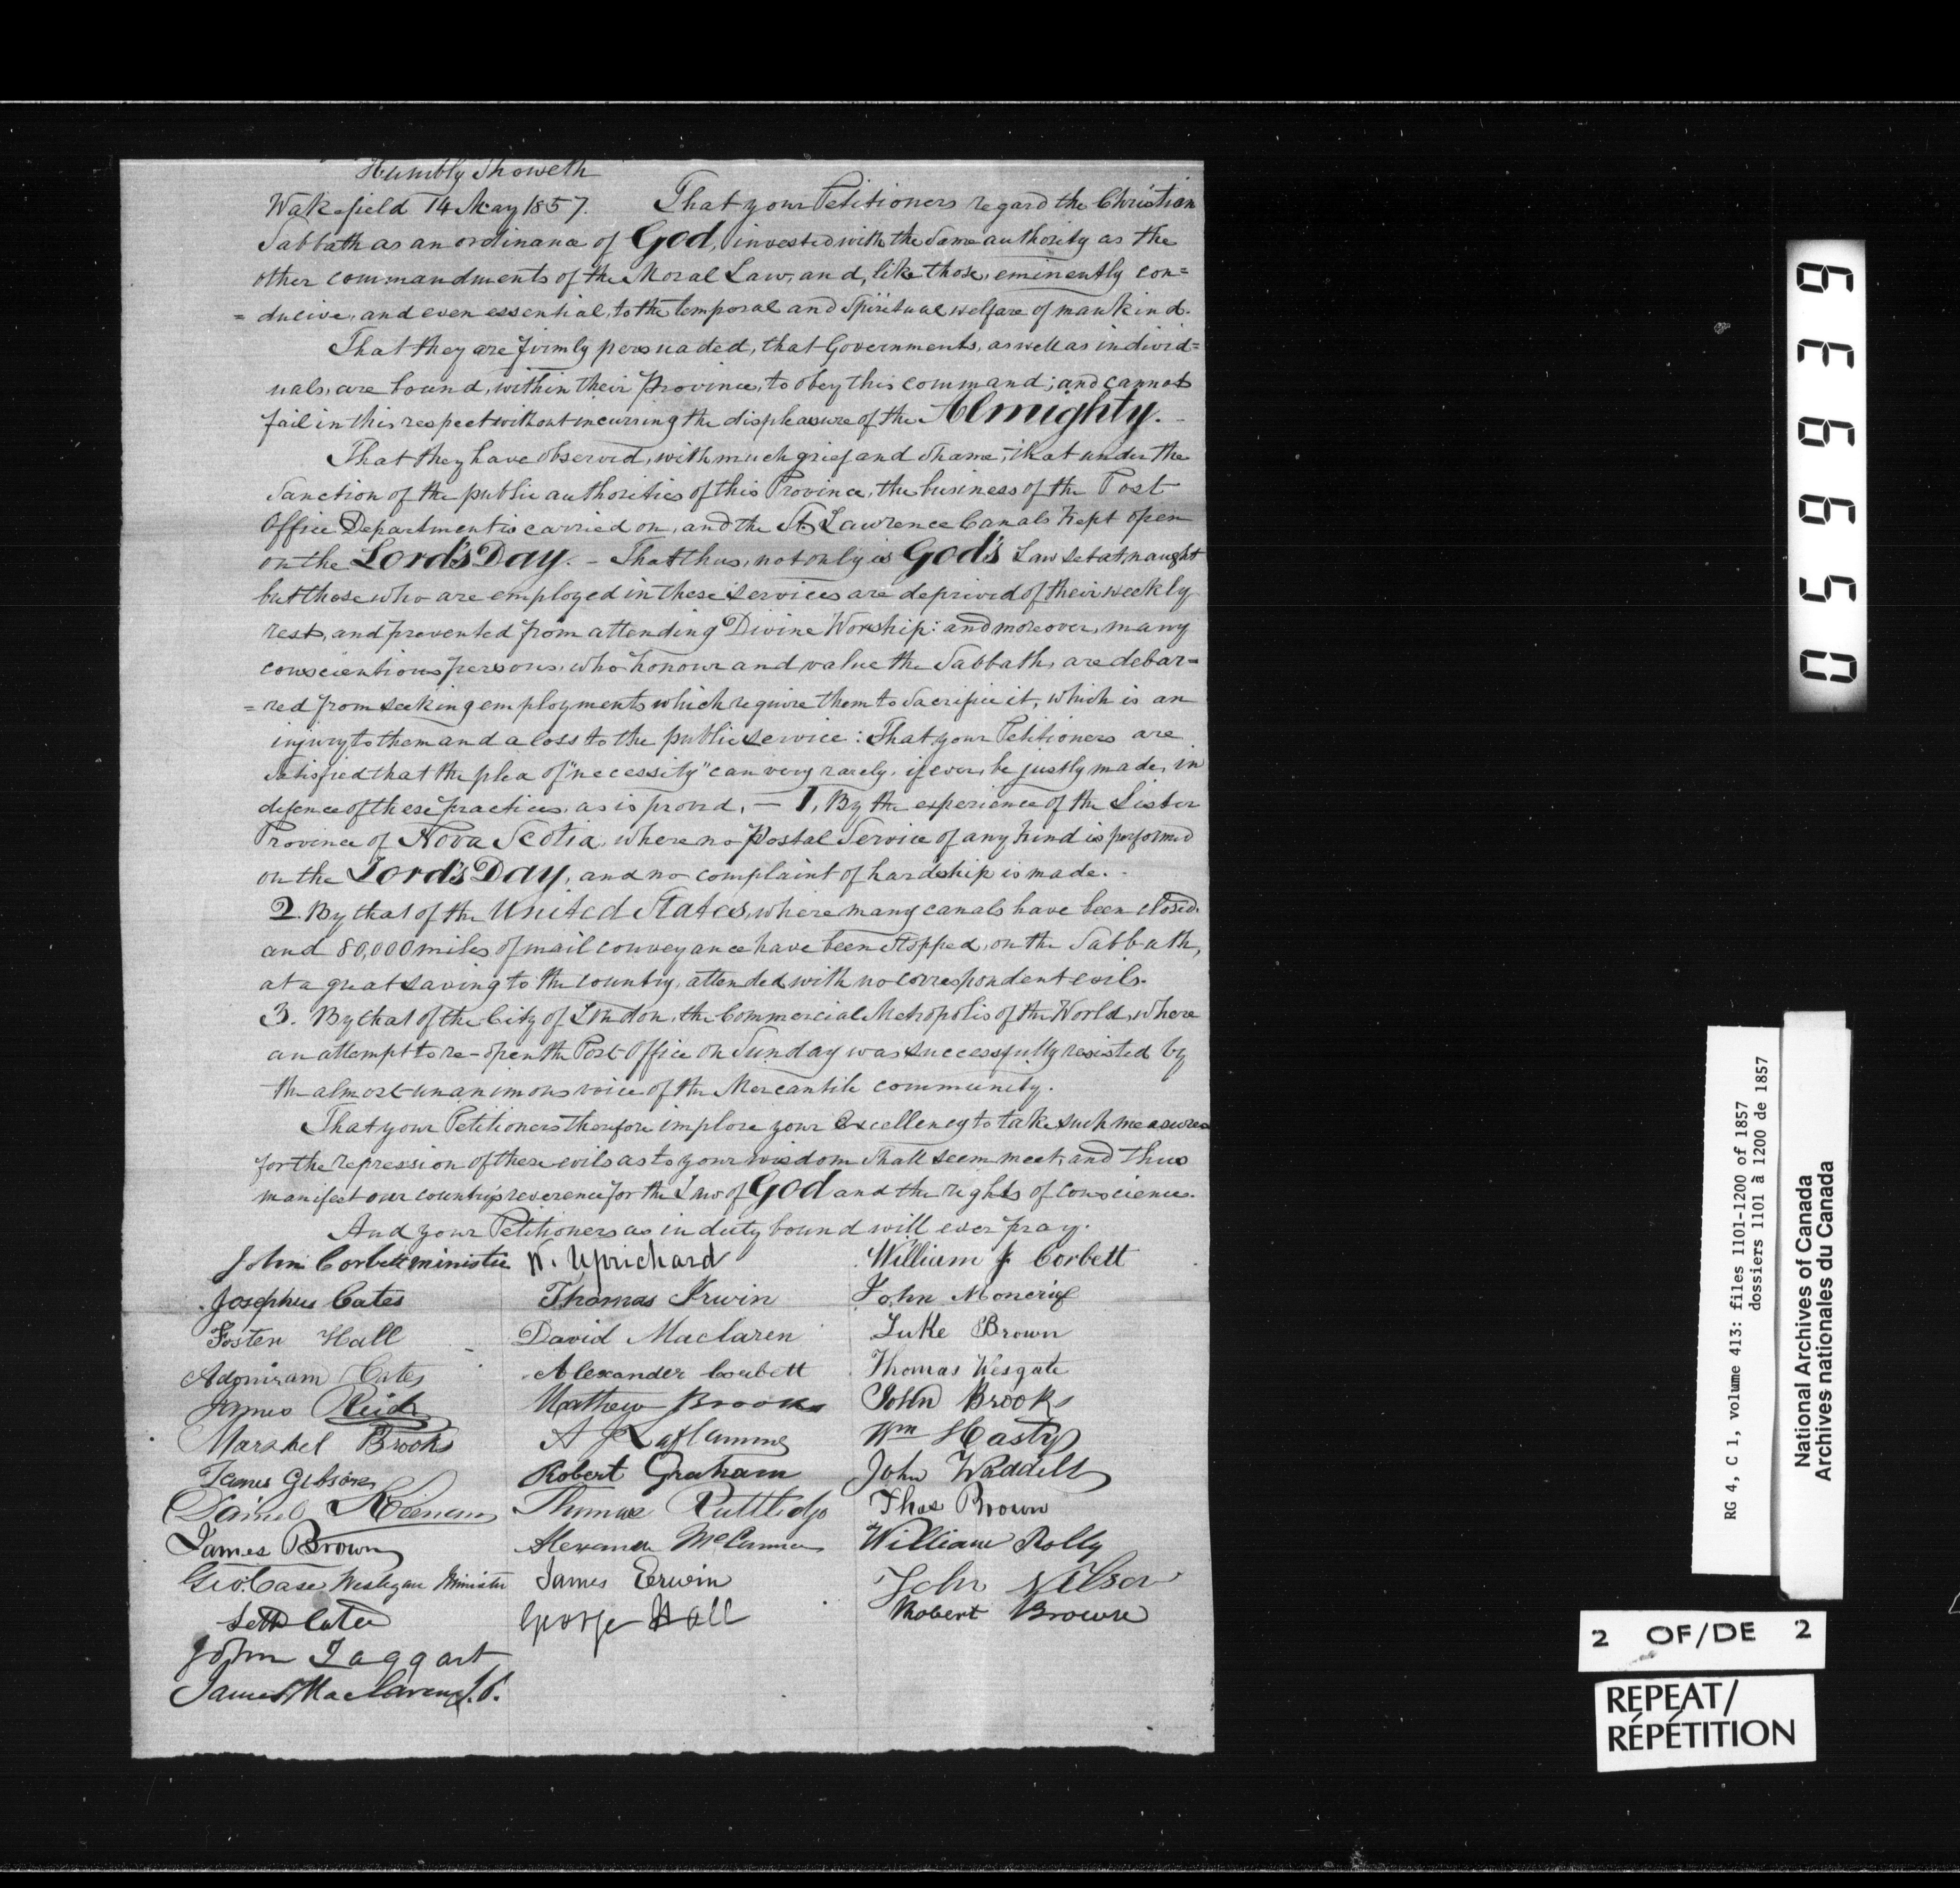 Humbly Showeth
Wakefield 14 May 1857. That your Petitioners regard the Christian
Sabbath as an ordinance of God, invested with the same authority as the
other commandments of the Moral Law, and, like those, eminently con=
= ducive, and even essential, to the temporal and spiritual welfare of mankind.
That they are firmly persuaded, that Governments, as well as individ=
uals, are bound, within their province, to obey this command; and cannot
fail in this respect without incurring the displeasure of the Almighty.
That they have observed, with much grief and shame, that under the
sanction of the public authorities of this Province, the business of the Post
Office Department is carried on, and the St. Lawrence Canals kept open
on the Lord's Day. - That thus, not only is God's Law set at naught
but those who are employed in these services are deprived of their weekly
rest, and prevented from attending Divine Worship: and moreover, many
conscientious persons, who honour and value the Sabbath, are debar=
= red from seeking employments which require them to sacrifice it, which is an
injury to them and a loss to the public service: That your Petitioners are
satisfied that the plea of "necessity" can very rarely, if ever, be justly made, in
defence of these practices, as is proved, — 1, By the experience of the Sister
Province of Nova Scotia, where no Postal Service of any kind is performed
on the Lord's Day, and no complaint of hardship is made. -
2. By that of the United States, where many canals have been closed,
and 80,000 miles of mail conveyance have been stopped, on the Sabbath,
at a great saving to the country, attended with no correspondent evils.
3. By that of the City of London, the Commercial Metropolis of the World, where
an attempt to re-open the Post Office on Sunday was successfully resisted by
the almost unanimous voice of the Mercantile community.
That your Petitioners therefore implore your Excellency to take such measures
for the repression of these evils as to your wisdom shall seem meet, and thus
manifest our country's reverence for the Law of God and the rights of conscience.
And your Petitioners as in duty bound will ever pray.
John Corbett minister W. Uprichard William J. Corbett
Josephus Cates Thomas Irwin John Moncrief
Foster Hall David Maclaren Luke Brown
Adoniram Cates Alexander Corbett Thomas Wesgate
James Reid Mathew Brooks John Brooks
Marshel Brooks A J Laflamme Wm Hasty
James Gibson Robert Graham John Waddell
Daniel Thomas Ruttledge Thos Brown
James Brown Alexander William Rolly
Geo. Case Wesleyan Minister James Erwin John Nelson
Seth Cates George Hall Robert Brown
John Taggart
James Maclaren J.P.
053669
RG 4, C 1, volume 413: files 1101-1200 of 1857
dossiers 1101 à 1200 de 1857
National Archives of Canada
Archives nationales du Canada
2 OF/DE 2
REPEAT/
RÉPÉTITION